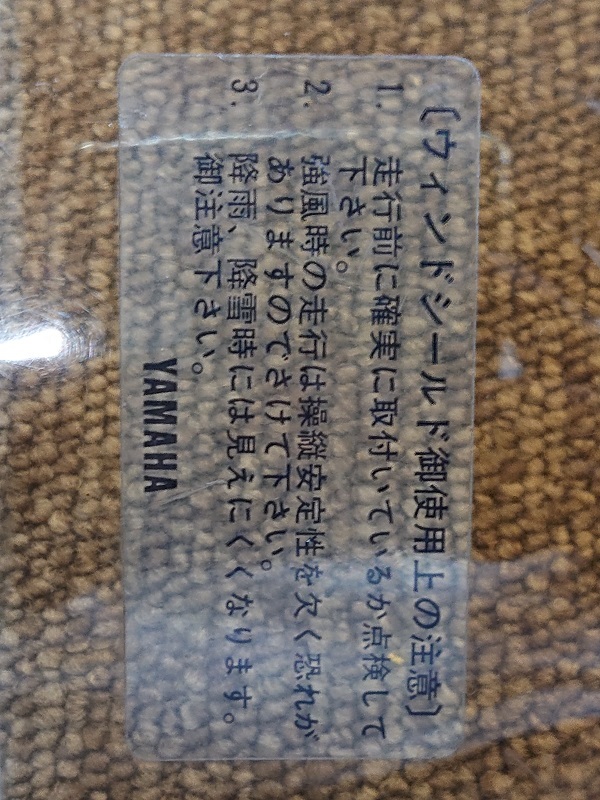 〔ウィンドシールド御使用上の注意〕
1. 走行前に確実に取付いているか点検して
下さい。
2. 強風時の走行は操縦安定性を欠く恐れが
ありますのでさけて下さい。
3. 降雨、降雪時には見えにくくなります。
御注意下さい。
YAMAHA